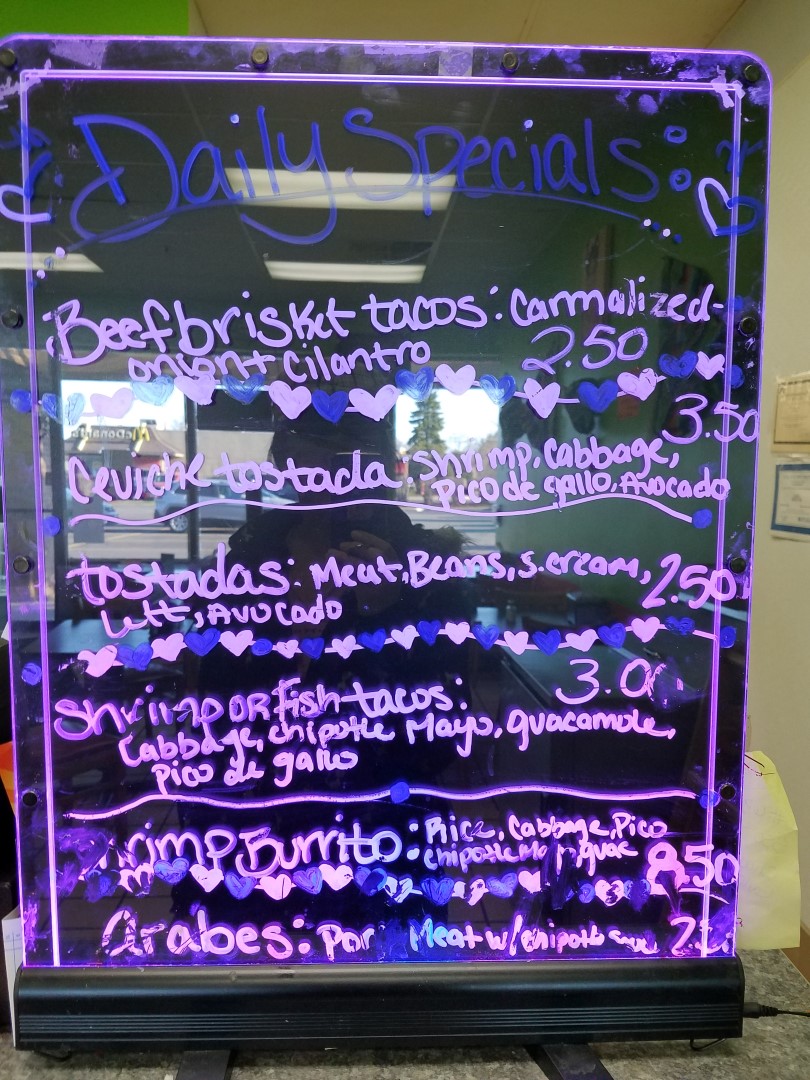 Daily Specials:
Beef brisket tacos: Carmalized
onion + Cilantro 2.50
3.50
Ceviche tostada: shrimp, Cabbage,
Pico de gallo, Avocado
tostadas: Meat, Beans, s. cream, 2.50
Lett, Avocado
Shrimp OR Fish tacos: 3.0
Cabbage, chipotle Mayo, guacamole,
Pico de gallo
Burrito: Rice, Cabbage, Pico
chipotle guac 8.50
Arabes: Meat w/ chipotle